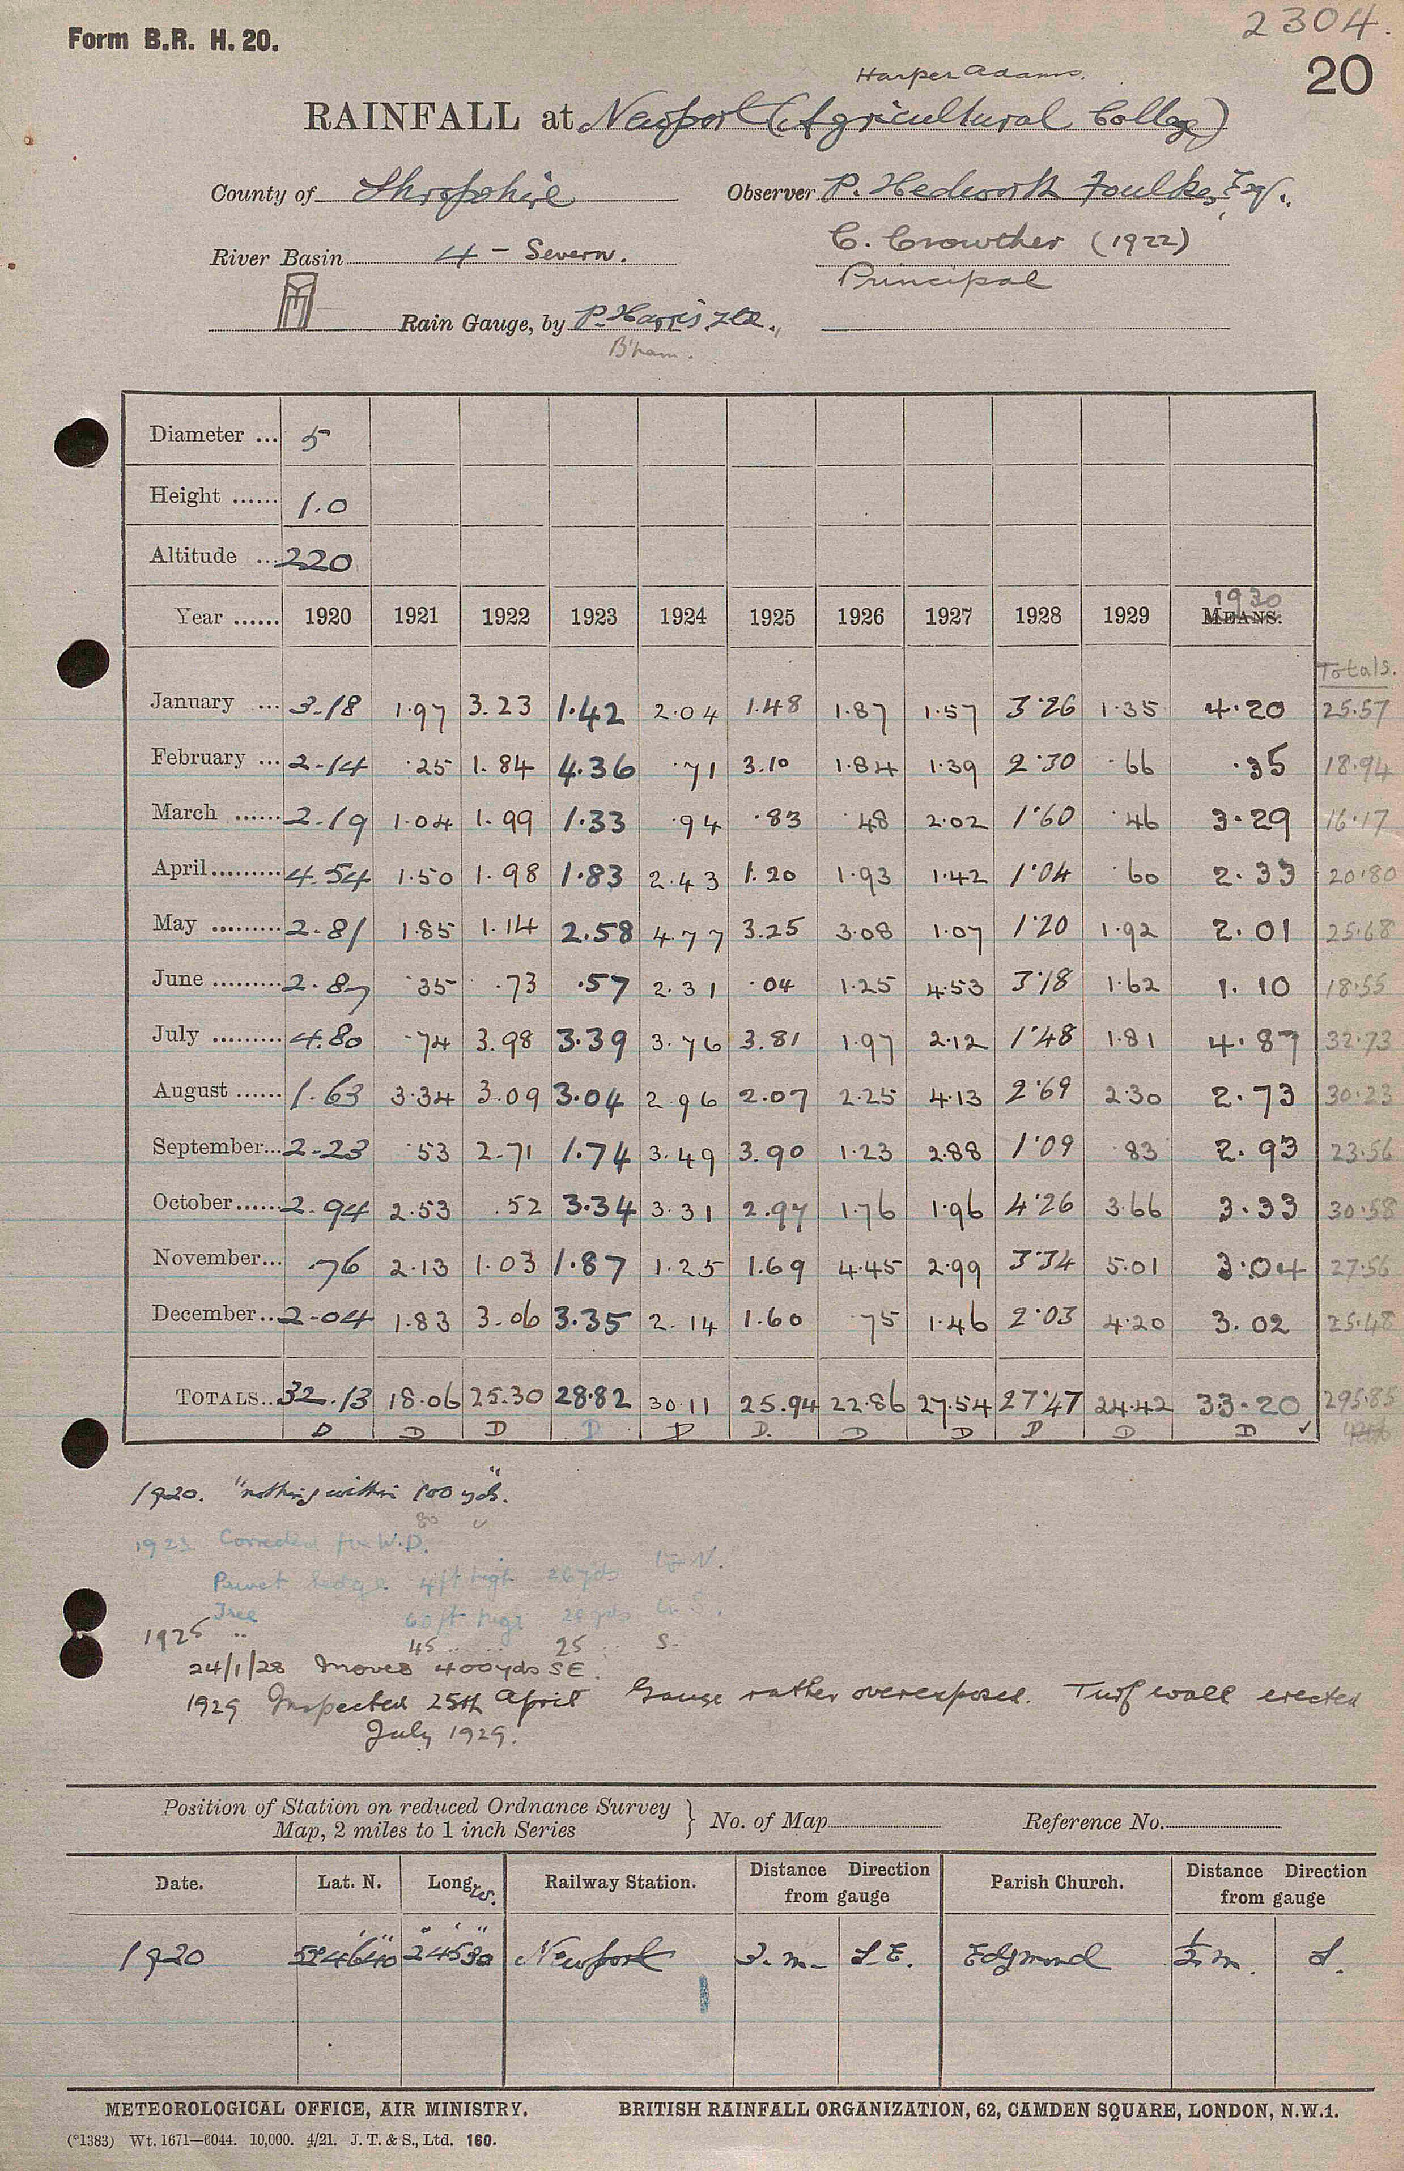 2304.
Form B.R. H. 20.
20
Harper Adams.
RAINFALL at Newport (Agricultural College)
County of Shropshire Observer P. Hedworth Foulkes, Esq.
C. Crowther (1922)
River Basin 4 - Severn.
Principal
Rain Gauge, by P. Harris, Ltd.,
B'ham.
Diameter ... 5
Height ...... 1.0
Altitude ... 220
1930
Year ...... 1920 1921 1922 1923 1924 1925 1926 1927 1928 1929 MEANS.
Totals.
January ... 3.18 1.97 3.23 1.42 2.04 1.48 1.87 1.57 3.26 1.35 4.20 25.57
February ... 2.14 .25 1.84 4.36 .71 3.10 1.84 1.39 2.30 .66 .35 18.94
March ...... 2.19 1.04 1.99 1.33 .94 .83 .48 2.02 1.60 .46 3.29 16.17
April ......... 4.54 1.50 1.98 1.83 2.43 1.20 1.93 1.42 1.04 .60 2.33 20.80
May ......... 2.81 1.85 1.14 2.58 4.77 3.25 3.08 1.07 1.20 1.92 2.01 25.68
June ......... 2.87 .35 .73 .57 2.31 .04 1.25 4.53 3.18 1.62 1.10 18.55
July ......... 4.80 .74 3.98 3.39 3.76 3.81 1.97 2.12 1.48 1.81 4.87 32.73
August ...... 1.63 3.34 3.09 3.04 2.96 2.07 2.25 4.13 2.69 2.30 2.73 30.23
September ... 2.23 .53 2.71 1.74 3.49 3.90 1.23 2.88 1.09 .83 2.93 23.56
October ...... 2.94 2.53 .52 3.34 3.31 2.97 1.76 1.96 4.26 3.66 3.33 30.58
November ... .76 2.13 1.03 1.87 1.25 1.69 4.45 2.99 3.34 5.01 3.04 27.56
December .. 2.04 1.83 3.06 3.35 2.14 1.60 .75 1.46 2.03 4.20 3.02 25.48
TOTALS .. 32.13 18.06 25.30 28.82 30.11 25.94 22.86 27.54 27.47 24.42 33.20 295.85
D D D D D D. D D D D D ✓
1920. "nothing within 100 yds."
80
1923 Corrected for W.D.
Privet hedge 4 ft high 26 yds to N.
Tree 60 ft high 28 yds to S.
1925 " 45 .. .. 25 .. S.
24/1/28 Moved 400 yds SE.
1929 Inspected 25th April Gauge rather overexposed. Turf wall erected
July 1929.
Position of Station on reduced Ordnance Survey
Map, 2 miles to 1 inch Series } No. of Map Reference No.
Date. Lat. N. Long. W. Railway Station. Distance Direction from gauge Parish Church. Distance Direction from gauge
1920 52° 46' 40" 2° 45' 30" Newport 3. m. S.E. Edgmond ½ m. S.
METEOROLOGICAL OFFICE, AIR MINISTRY. BRITISH RAINFALL ORGANIZATION, 62, CAMDEN SQUARE, LONDON, N.W.1.
(*1383) Wt. 1671—6044. 10,000. 4/21. J. T. & S., Ltd. 160.